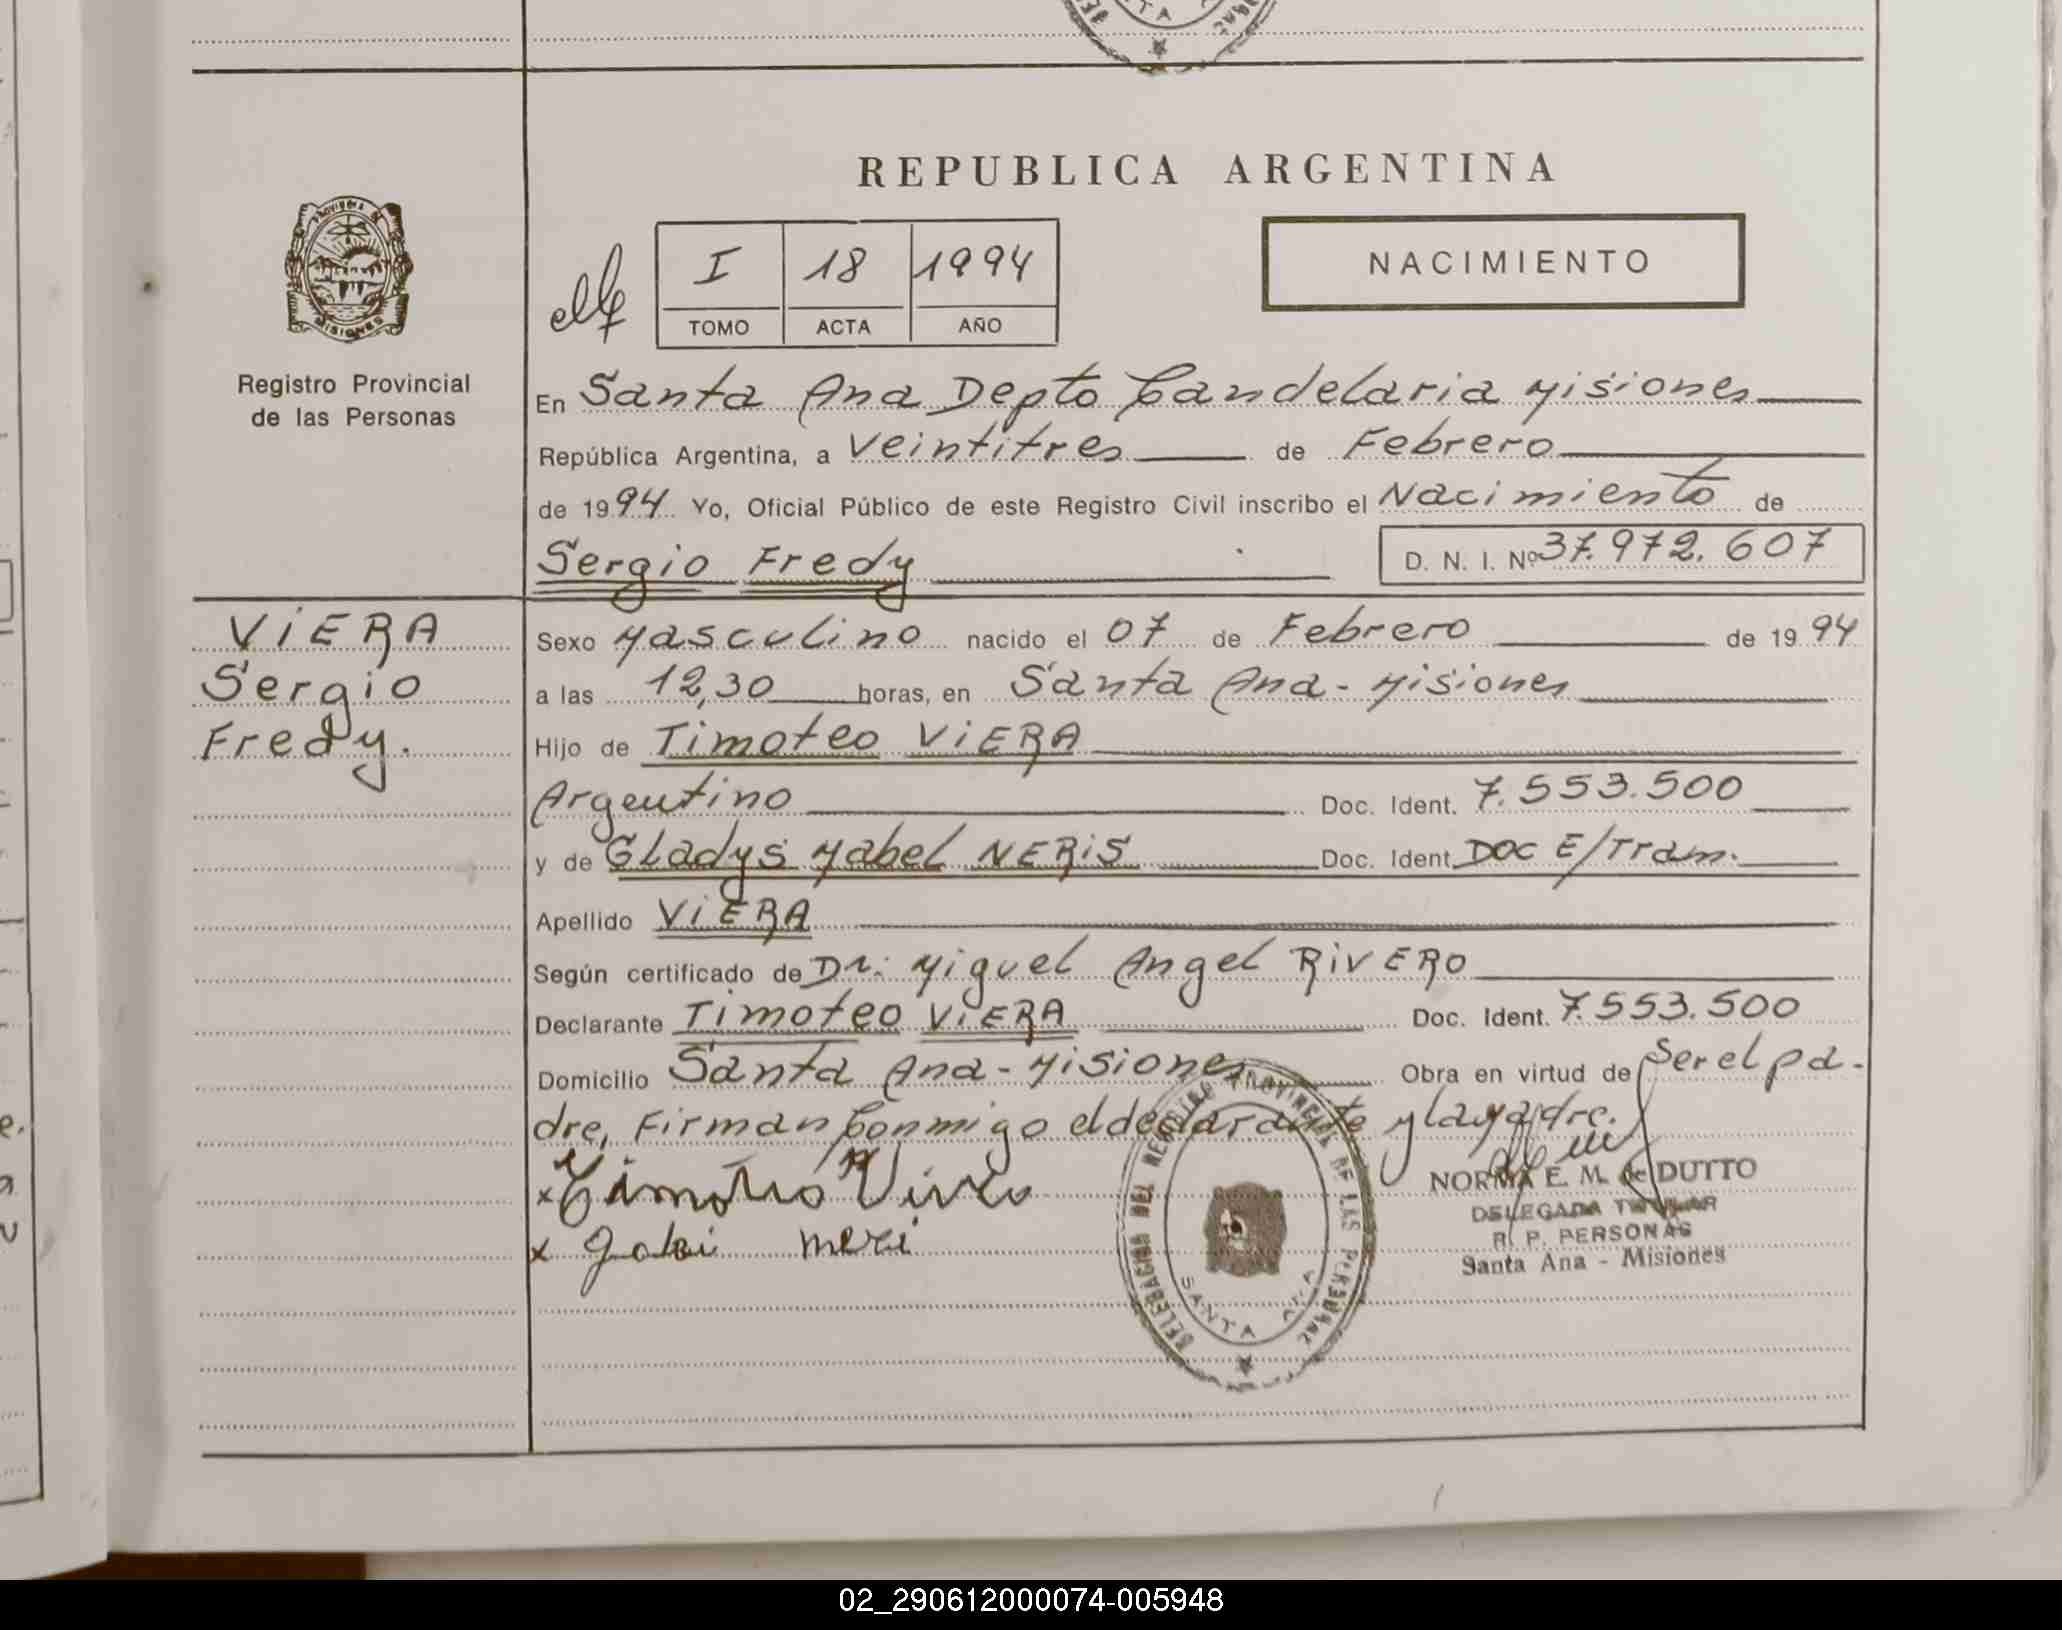 REPUBLICA ARGENTINA
PROVINCIA DE
MISIONES
Registro Provincial
de las Personas
I 18 1994
TOMO ACTA AÑO
NACIMIENTO
En Santa Ana Depto Candelaria Misiones
República Argentina, a Veintitres de Febrero
de 1994 Yo, Oficial Público de este Registro Civil inscribo el Nacimiento de
Sergio Fredy D. N. I. Nº 37.972.607
VIERA
Sergio
Fredy.
Sexo Masculino nacido el 07 de Febrero de 1994
a las 12,30 horas, en Santa Ana - Misiones
Hijo de Timoteo VIERA
Argentino Doc. Ident. 7.553.500
y de Gladys Mabel NERIS Doc. Ident. DOC E/Tram.
Apellido VIERA
Según certificado de Dr. Miguel Angel RIVERO
Declarante Timoteo VIERA Doc. Ident. 7.553.500
Domicilio Santa Ana - Misiones Obra en virtud de Ser el pa-
dre, Firman Conmigo el declarante y la Madre.
x Timoteo Viera
x
DELEGACION DEL REGISTRO PROVINCIAL DE LAS PERSONAS
SANTA ANA
NORMA E. M. de DUTTO
DELEGADA TITULAR
R. P. PERSONAS
Santa Ana - Misiones
02_290612000074-005948